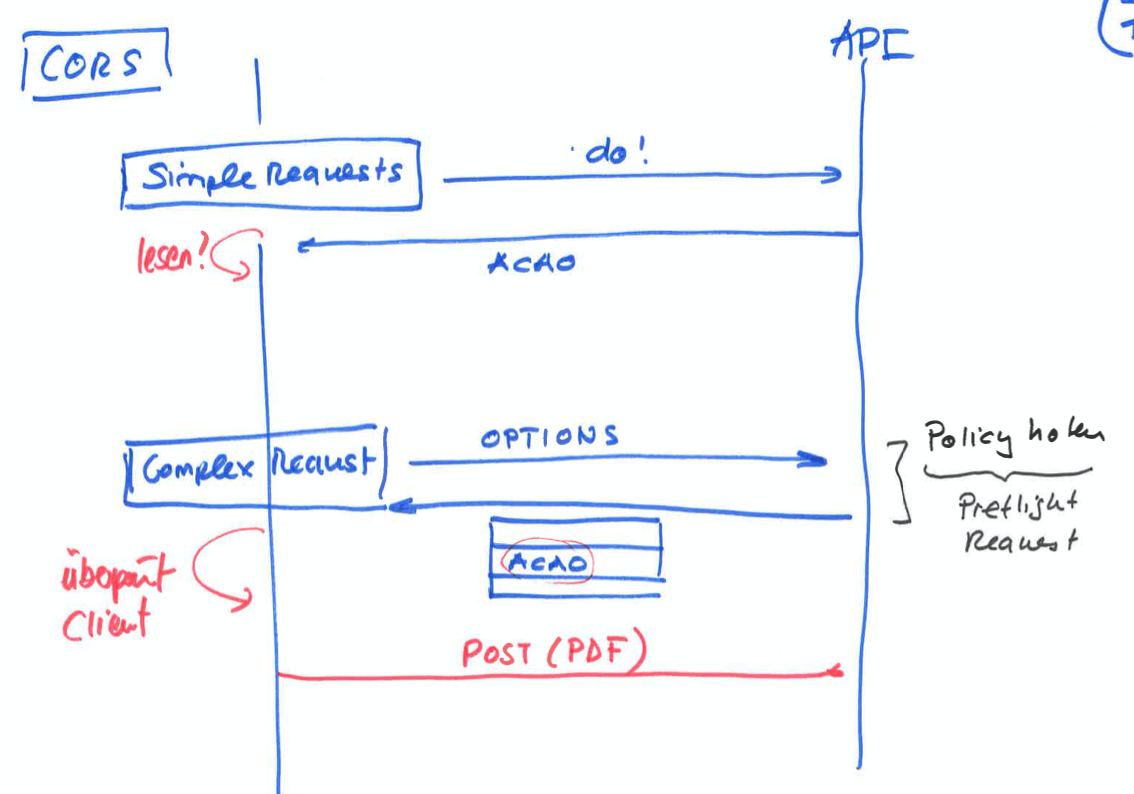 CORS
API
Simple Requests
do!
lesen?
ACAO
Complex Request
OPTIONS
Policy holen
Preflight
Request
ACAO
überprüft
Client
POST (PDF)